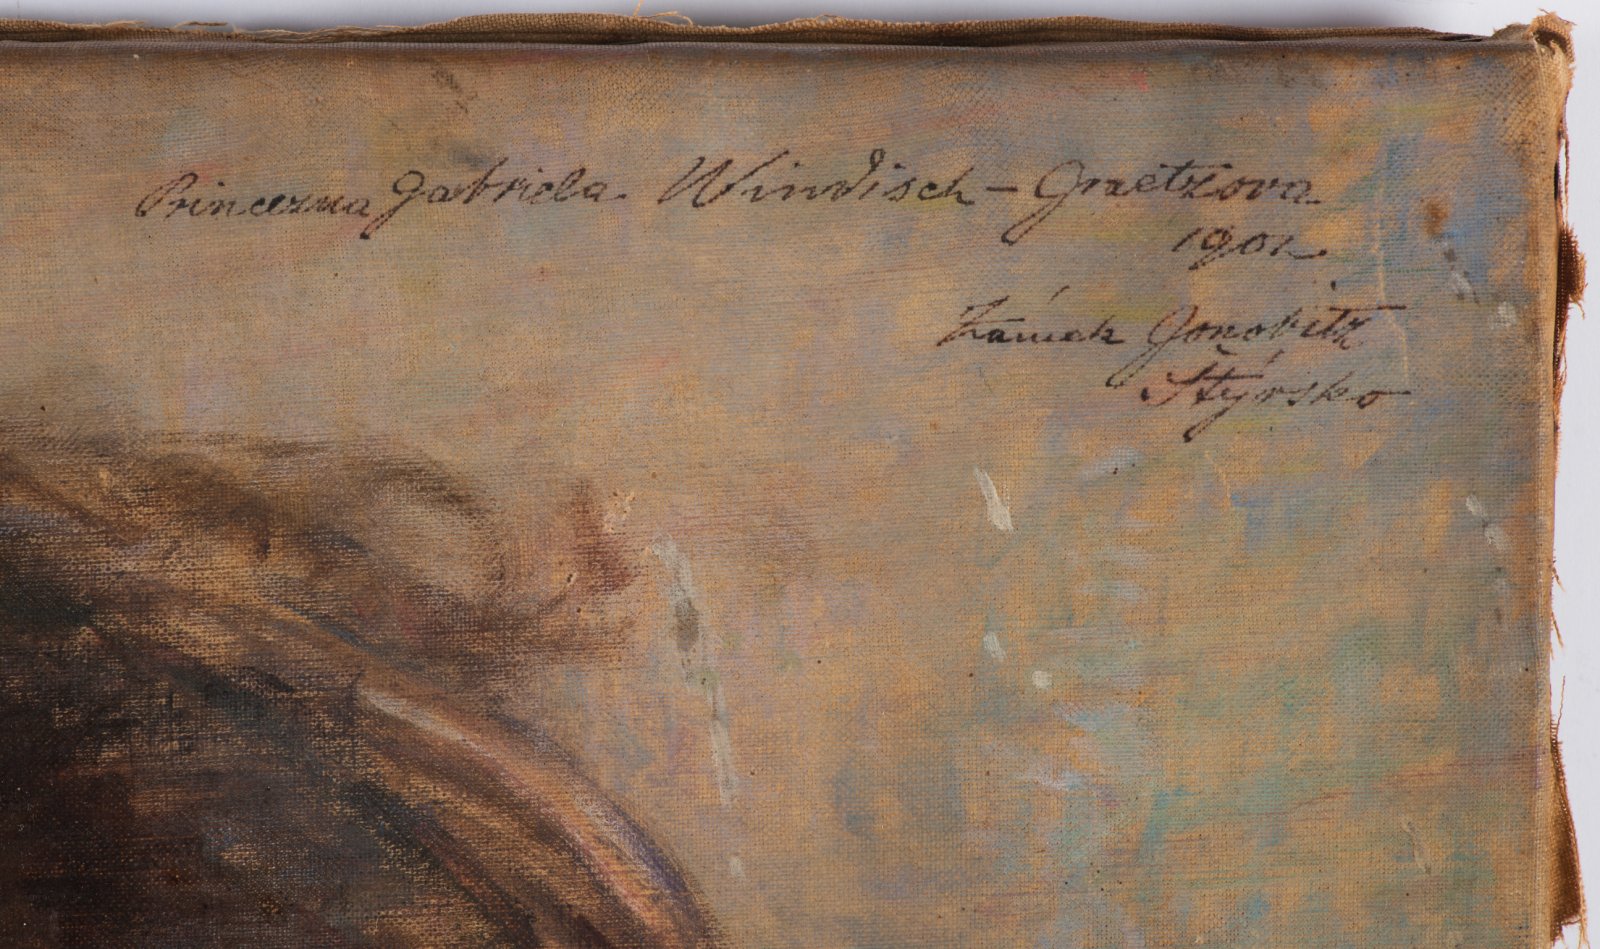 Princezna Gabriela Windisch-Graetzova
1901
Zámek Gonobitz
Štýrsko